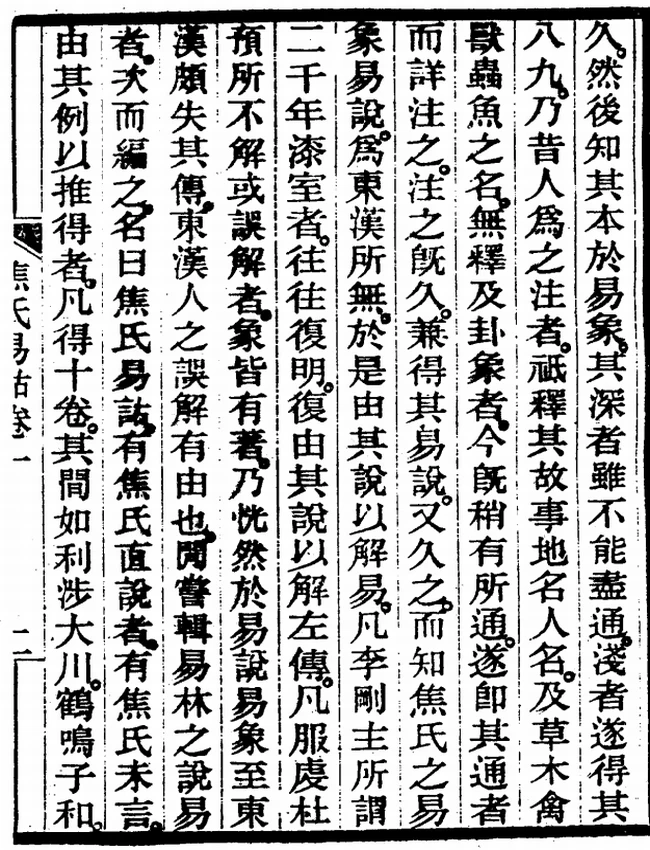 久。然後知其本於易象。其深者雖不能盡通。淺者遂得其
八九。乃昔人爲之注者。祇釋其故事地名人名。及草木禽
獸蟲魚之名。無釋及卦象者。今既稍有所通。遂卽其通者
而詳注之。注之既久。兼得其易說。又久之。而知焦氏之易
象易說。爲東漢所無。於是由其說以解易。凡李剛主所謂
二千年漆室者。往往復明。復由其說以解左傳。凡服虔杜
預所不解或誤解者。象皆有著。乃恍然於易說易象至東
漢頗失其傳。東漢人之誤解有由也。閒嘗輯易林之說易
者。次而編之。名曰焦氏易詁。有焦氏直說者。有焦氏未言。
由其例以推得者。凡得十卷。其間如利涉大川。鶴鳴子和。
焦氏易詁卷一
二